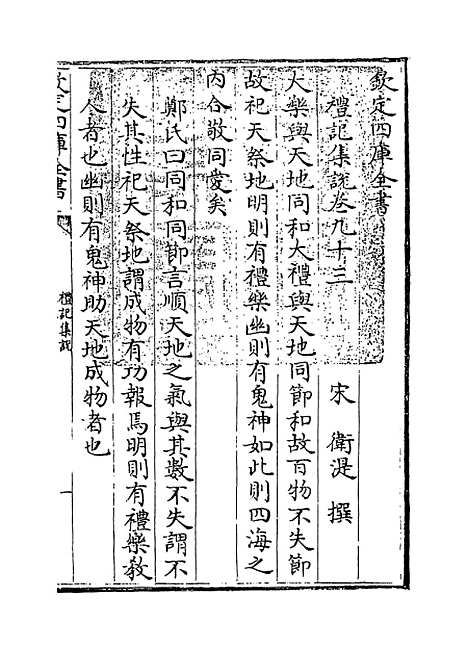 欽定四庫全書
禮記集說卷九十三
宋 衛湜 撰
大樂與天地同和大禮與天地同節和故百物不失節
故祀天祭地明則有禮樂幽則有鬼神如此則四海之
內合敬同愛矣
鄭氏曰同和同節言順天地之氣與其數不失謂不
失其性祀天祭地謂成物有功報焉明則有禮樂教
人者也幽則有鬼神助天地成物者也
欽定四庫全書
禮記集說
一